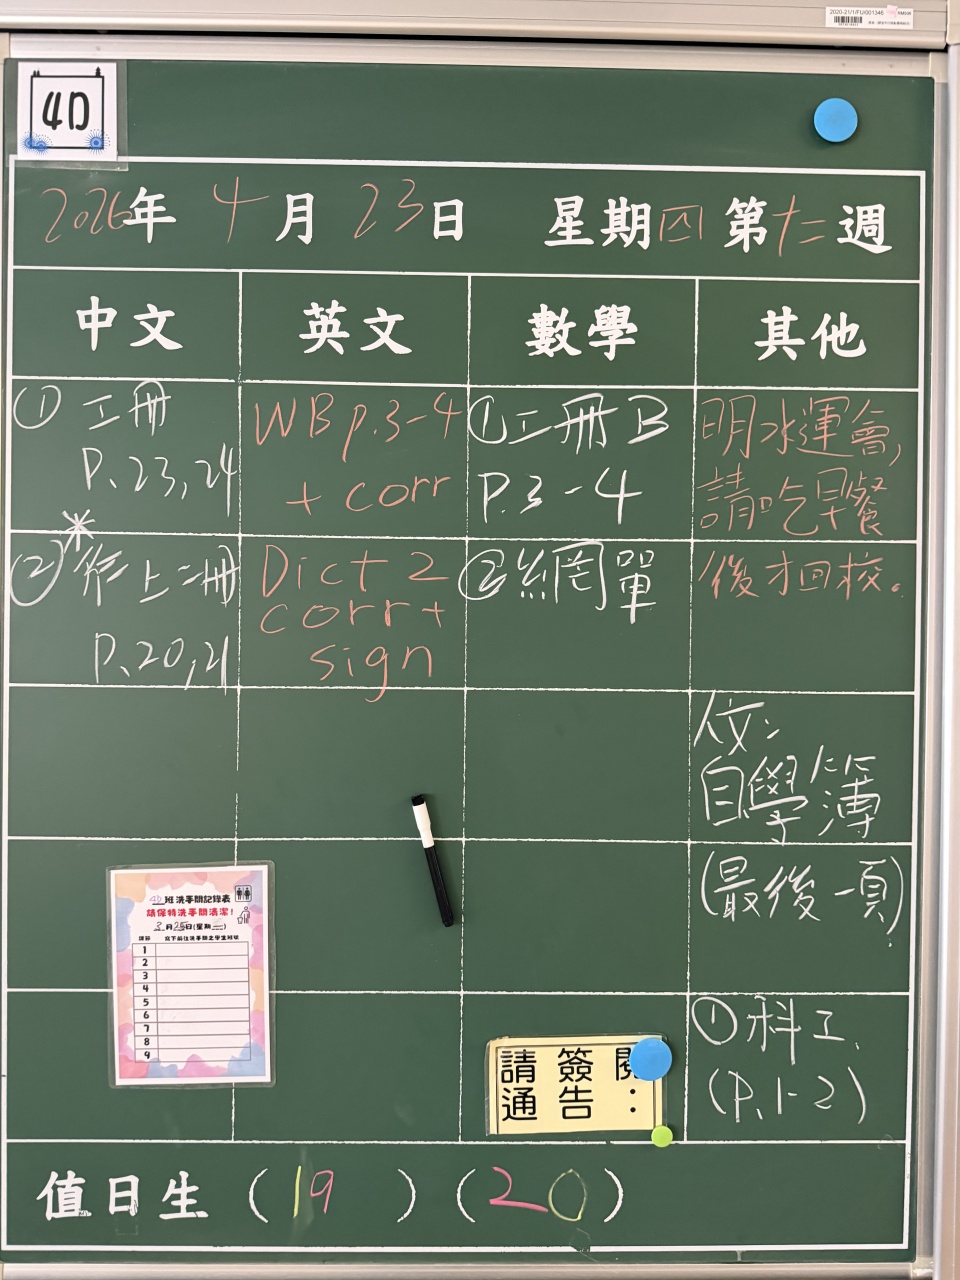 2020-21/1/FU/001346
4D
2026年 4月 23日 星期四 第十二週
中文 英文 數學 其他
① 工冊
P.23,24
*
② 作上二冊
P.20,21
WB p.3-4
+ corr
Dict 2
corr +
sign
①工冊B
P.3-4
②網單
明水運會,
請吃早餐
後才回校。
交:
自學簿
(最後一頁)
① 科工
(P.1-2)
4D班洗手間記錄表
請保持洗手間清潔!
3月25日(星期三)
課節 寫下前往洗手間之學生班號
1
2
3
4
5
6
7
8
9
請簽閱
通告:
值日生 (19) (20)